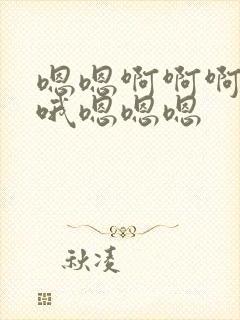 嗯嗯啊啊啊
哦嗯嗯嗯
秋凌